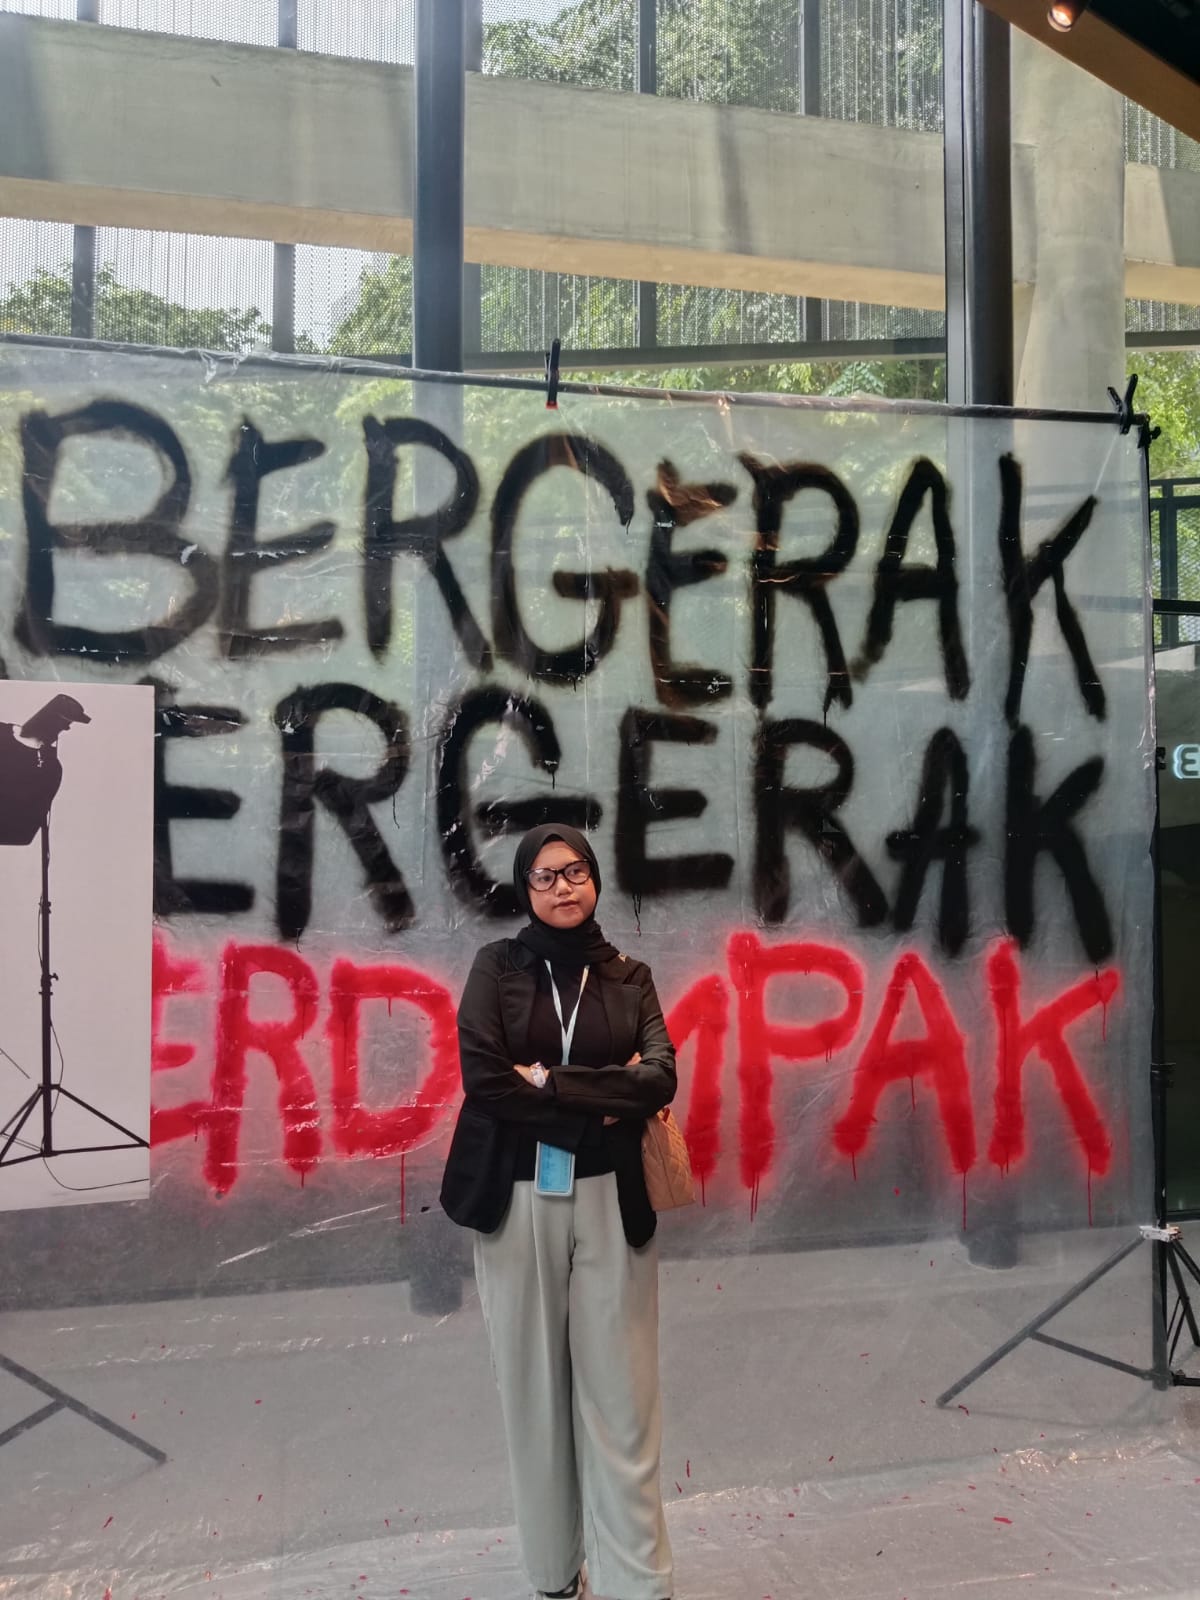 BERGERAK
ERGERAK
ERD MPAK